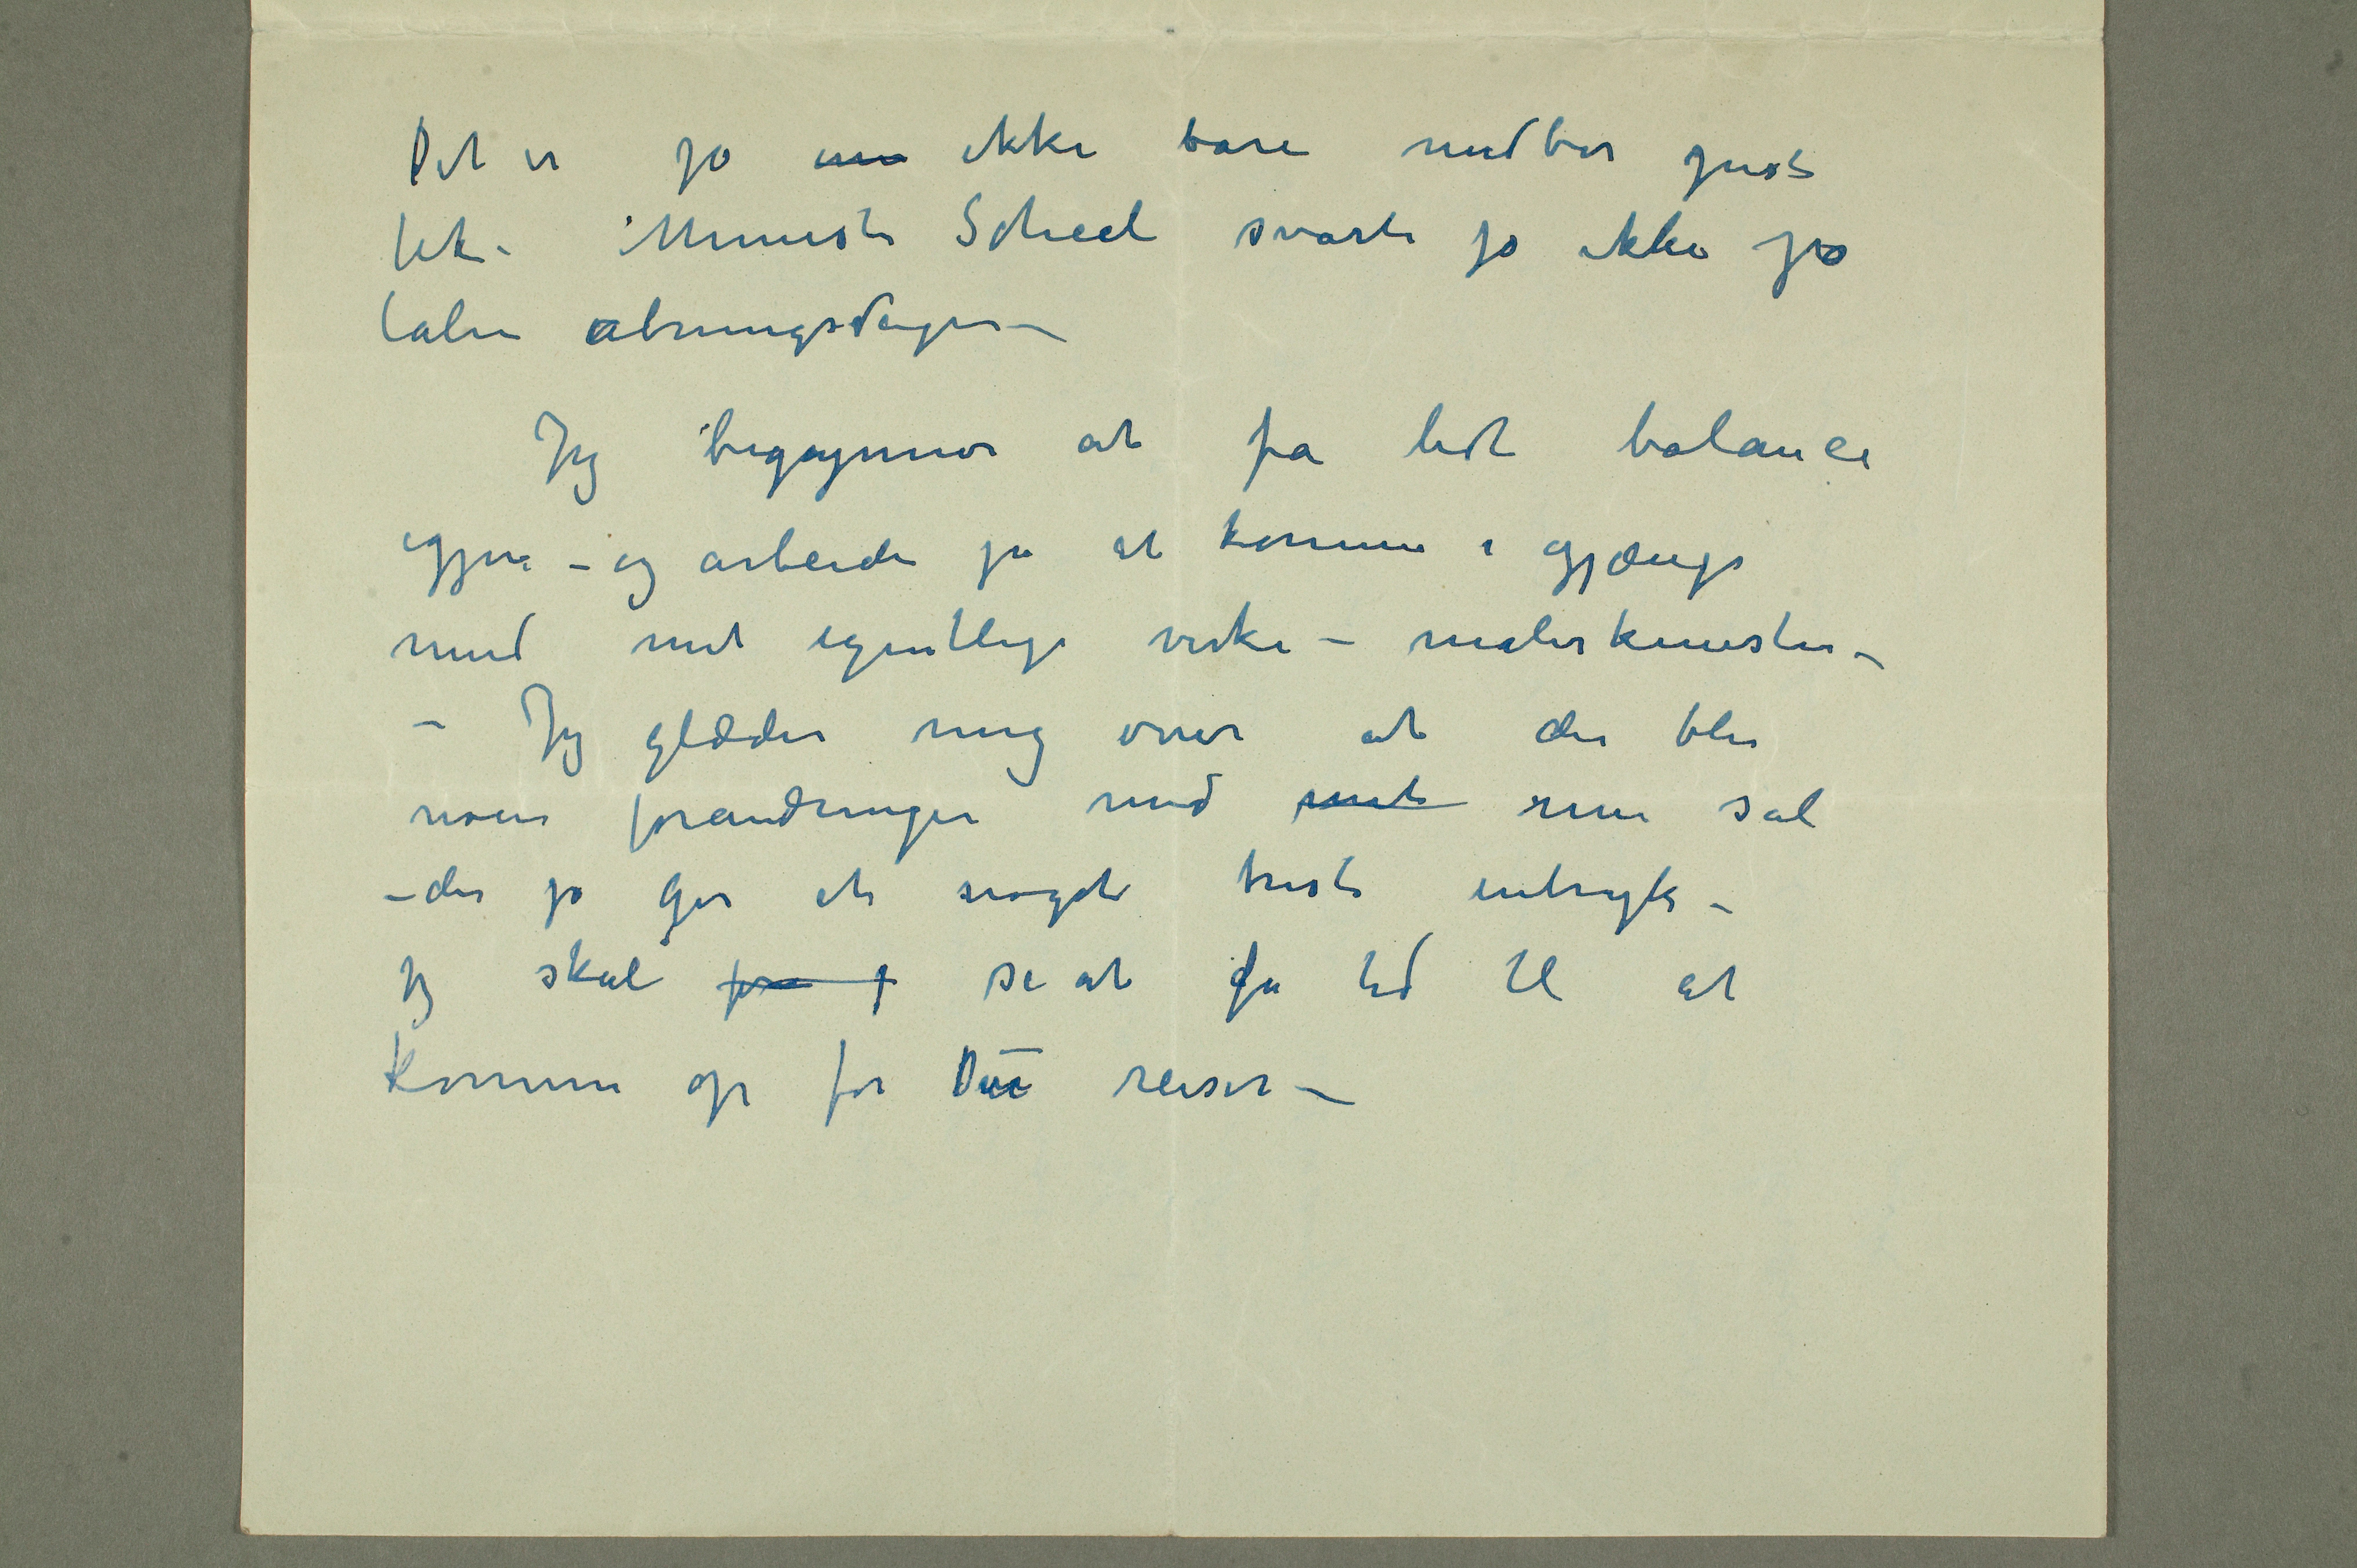 Det er jo ikke bare nedbør
fik. Minister Scheel svarte jo ikke på
talen åbningsdagen –
Jeg begynner at få lidt balance
igjen – og arbeider på at komme i gjænge
med mit egentlige virke – malerkunsten –
– Jeg glæder mig over at der blir
noen forandringer med min sal
– der jo gør et noget trist intryk –
Jeg skal se at få tid til at
komme op før Du reiser –